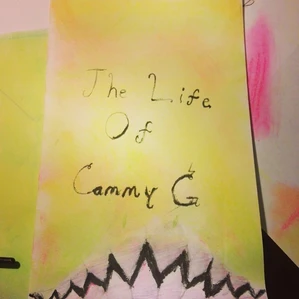 The Life
Of
Cammy G